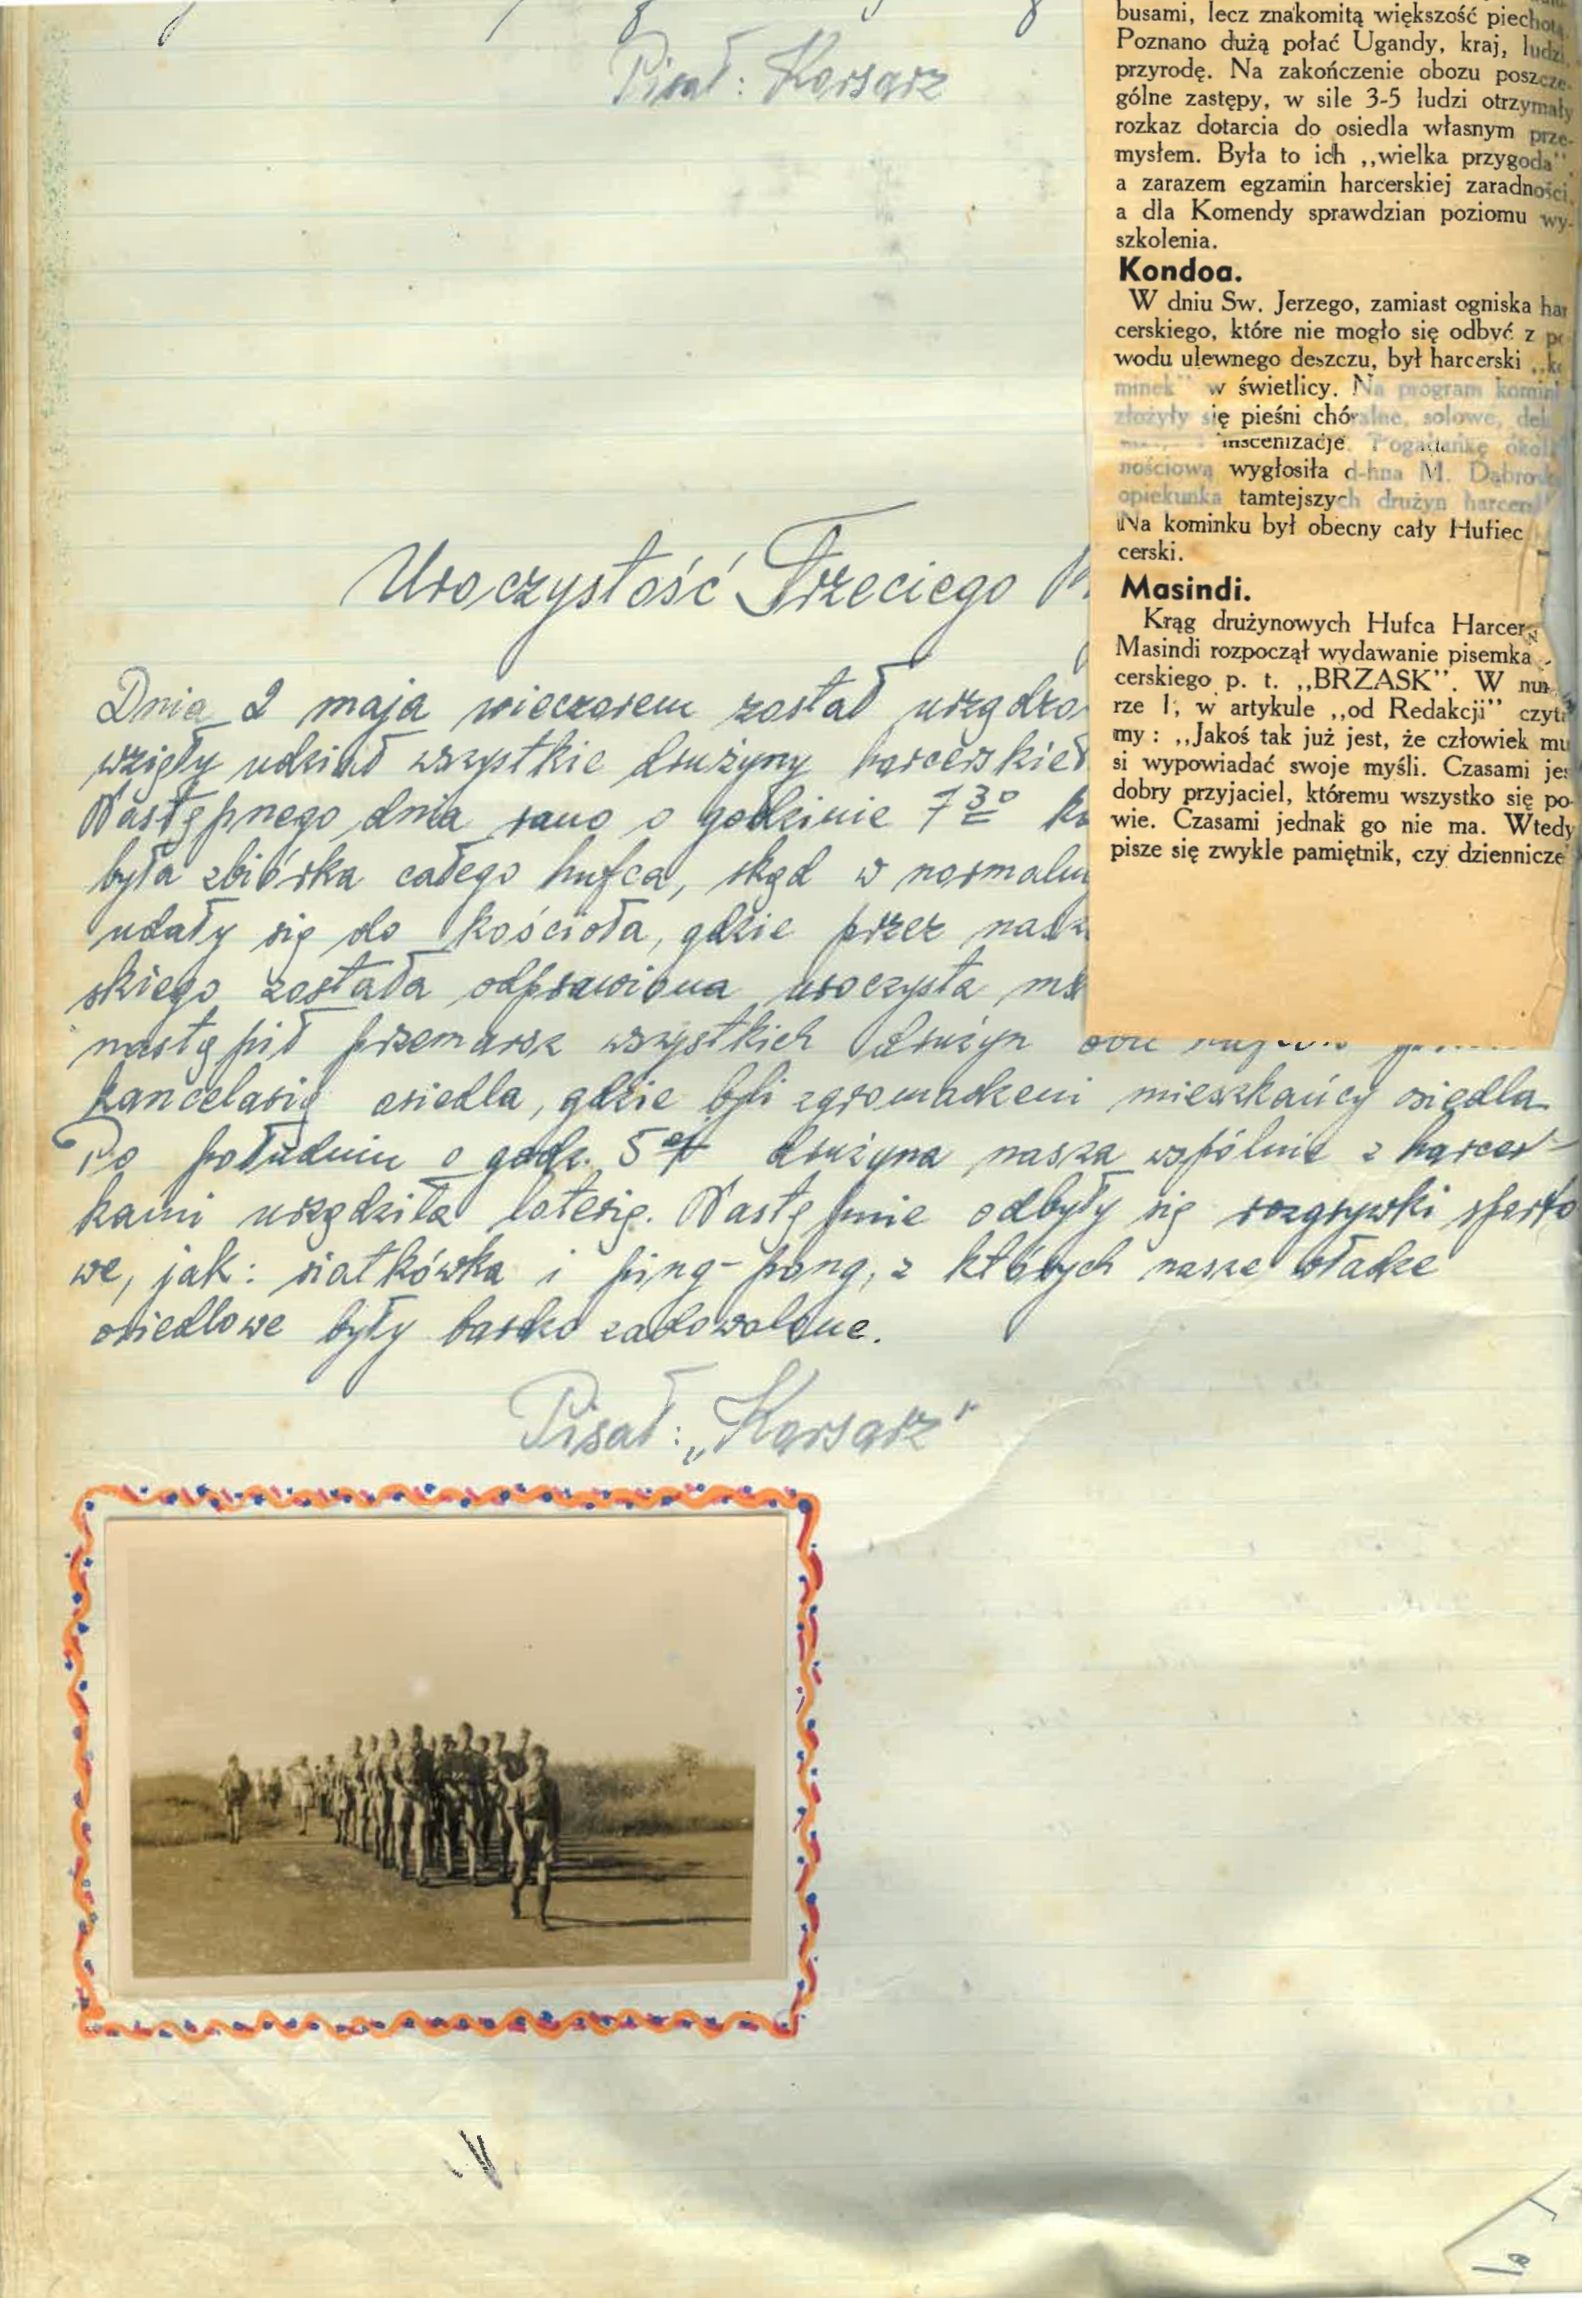 Pisał: Korsarz
busami, lecz znakomitą większość piechotą.
Poznano dużą połać Ugandy, kraj, ludzi,
przyrodę. Na zakończenie obozu poszcze-
gólne zastępy, w sile 3-5 ludzi otrzymały
rozkaz dotarcia do osiedla własnym prze-
mysłem. Była to ich ,,wielka przygoda''
a zarazem egzamin harcerskiej zaradności,
a dla Komendy sprawdzian poziomu wy-
szkolenia.
Kondoa.
W dniu Sw. Jerzego, zamiast ogniska har
cerskiego, które nie mogło się odbyć z po
wodu ulewnego deszczu, był harcerski ,,ko
minek'' w świetlicy. Na program komin
złożyły się pieśni chóralne, solowe, dek
inscenizacje. Pogadankę okol
nościową wygłosiła d-hna M. Dąbrow
opiekunka tamtejszych drużyn harcer
Na kominku był obecny cały Hufiec
cerski.
Masindi.
Krąg drużynowych Hufca Harcer
Masindi rozpoczął wydawanie pisemka
cerskiego p. t. ,,BRZASK''. W nu
rze 1, w artykule ,,od Redakcji'' czyta
my : ,,Jakoś tak już jest, że człowiek mu
si wypowiadać swoje myśli. Czasami jes
dobry przyjaciel, któremu wszystko się po-
wie. Czasami jednak go nie ma. Wtedy
pisze się zwykle pamiętnik, czy dziennicze
Uroczystość Trzeciego M
Dnia 2 maja wieczorem został urządzo
wzięły udział wszystkie drużyny harcerskie
Następnego dnia rano o godzinie 7 30
była zbiórka całego hufca, skąd w normaln
udały się do kościoła, gdzie przez nasz
skiego została odprawiona uroczysta ms
nastąpił przemarsz wszystkich drużyn obu
kancelarią osiedla, gdzie byli zgromadzeni mieszkańcy osiedla.
Po południu o godz. 5 drużyna nasza wspólnie z harcer-
kami urządziła loterię. Następnie odbyły się rozgrywki sporto
we, jak: siatkówka i ping-pong, z których nasze władze
osiedlowe były bardzo zadowolone.
Pisał: „Korsarz"